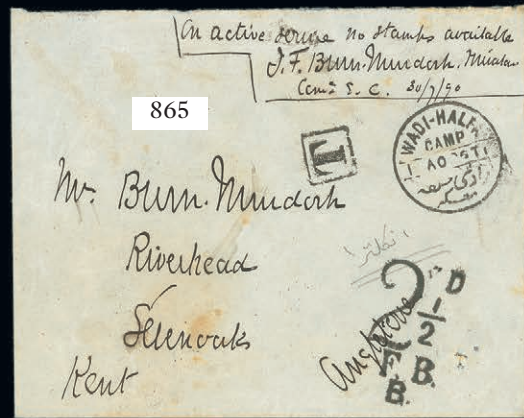 On active service no stamps available
J. F. Burn-Murdoch.
Com. S. C. 30/7/90
865
T
WADI-HALFA
CAMP
AO
Mr. Burn-Murdoch
Riverhead
Sevenoaks
Kent
انكلترا
Angleterre
2 1/2 D
B.
B.